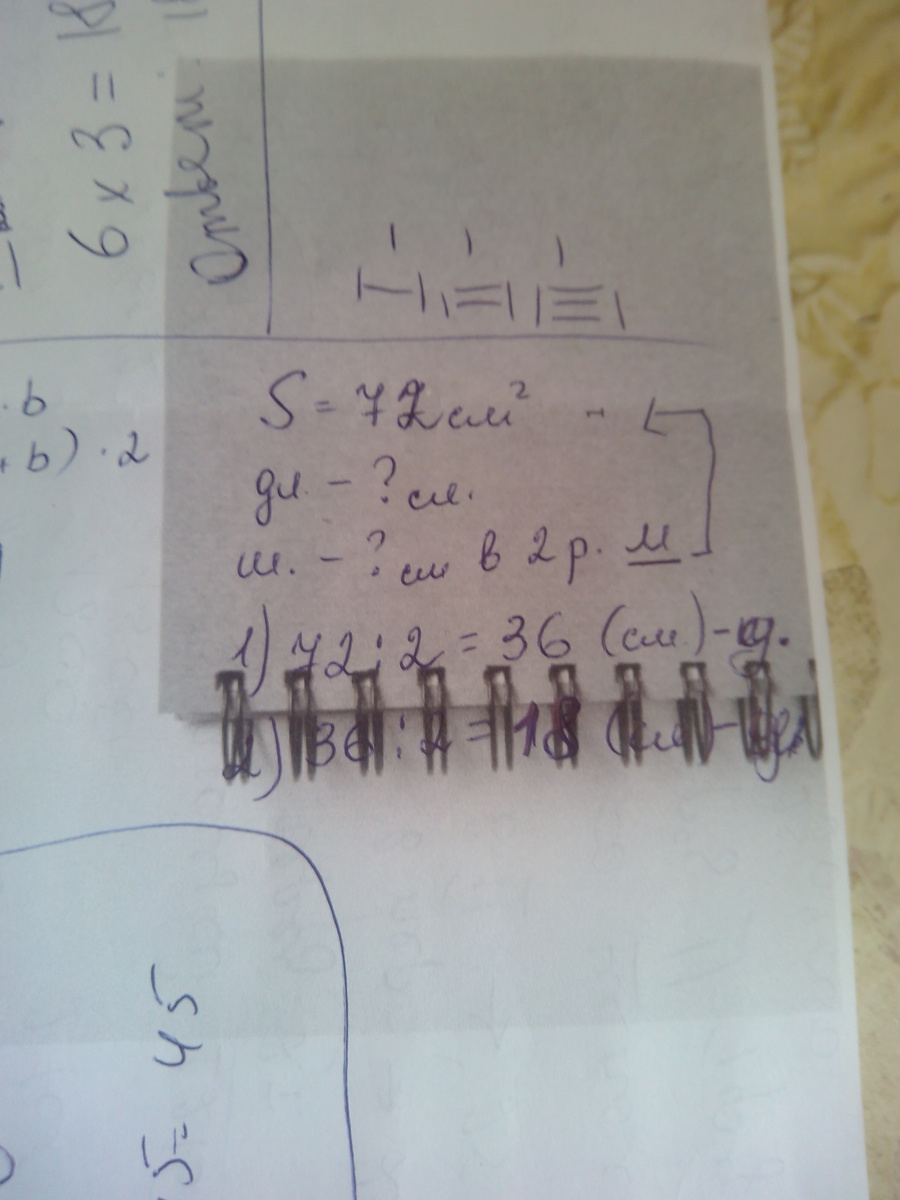 6 x 3 = 18
Ответ.
· b
+ b) · 2
S = 72 см²
дл. – ? см.
ш. – ? см в 2 р. м
1) 72 : 2 = 36 (см.) –
2) 36 : 2 = 18 (см) –
5 = 45